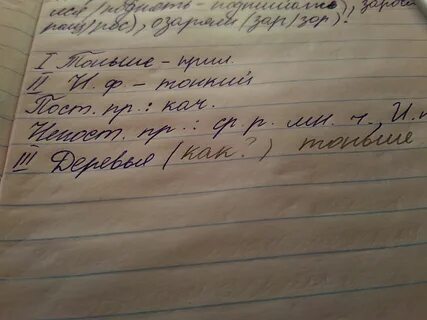 (поднять - поднимать),
ращ/рос), озарена (зар/зор).
I Тоньше - прил.
II Н.ф - тонкий
Пост. пр.: кач.
Непост. пр.: ср. р. мн. ч., И.
III Деревья (как?) тоньше